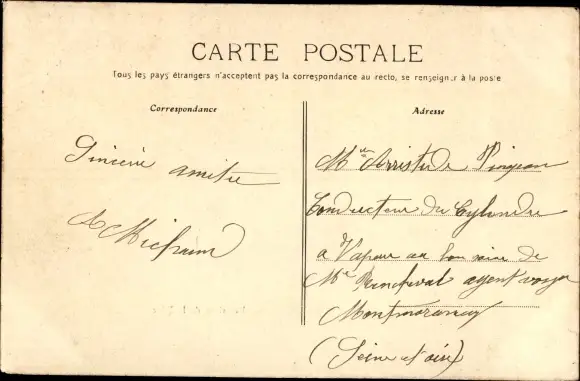 CARTE POSTALE
Tous les pays étrangers n'acceptent pas la correspondance au recto, se renseigner à la poste
Correspondance
Adresse
Sincerie amitie
Mr Arristide
Conducteur du Cylindre
a Vapeur au bon soins de
Mr agent voyer
Montmorency
(Seine et oise)